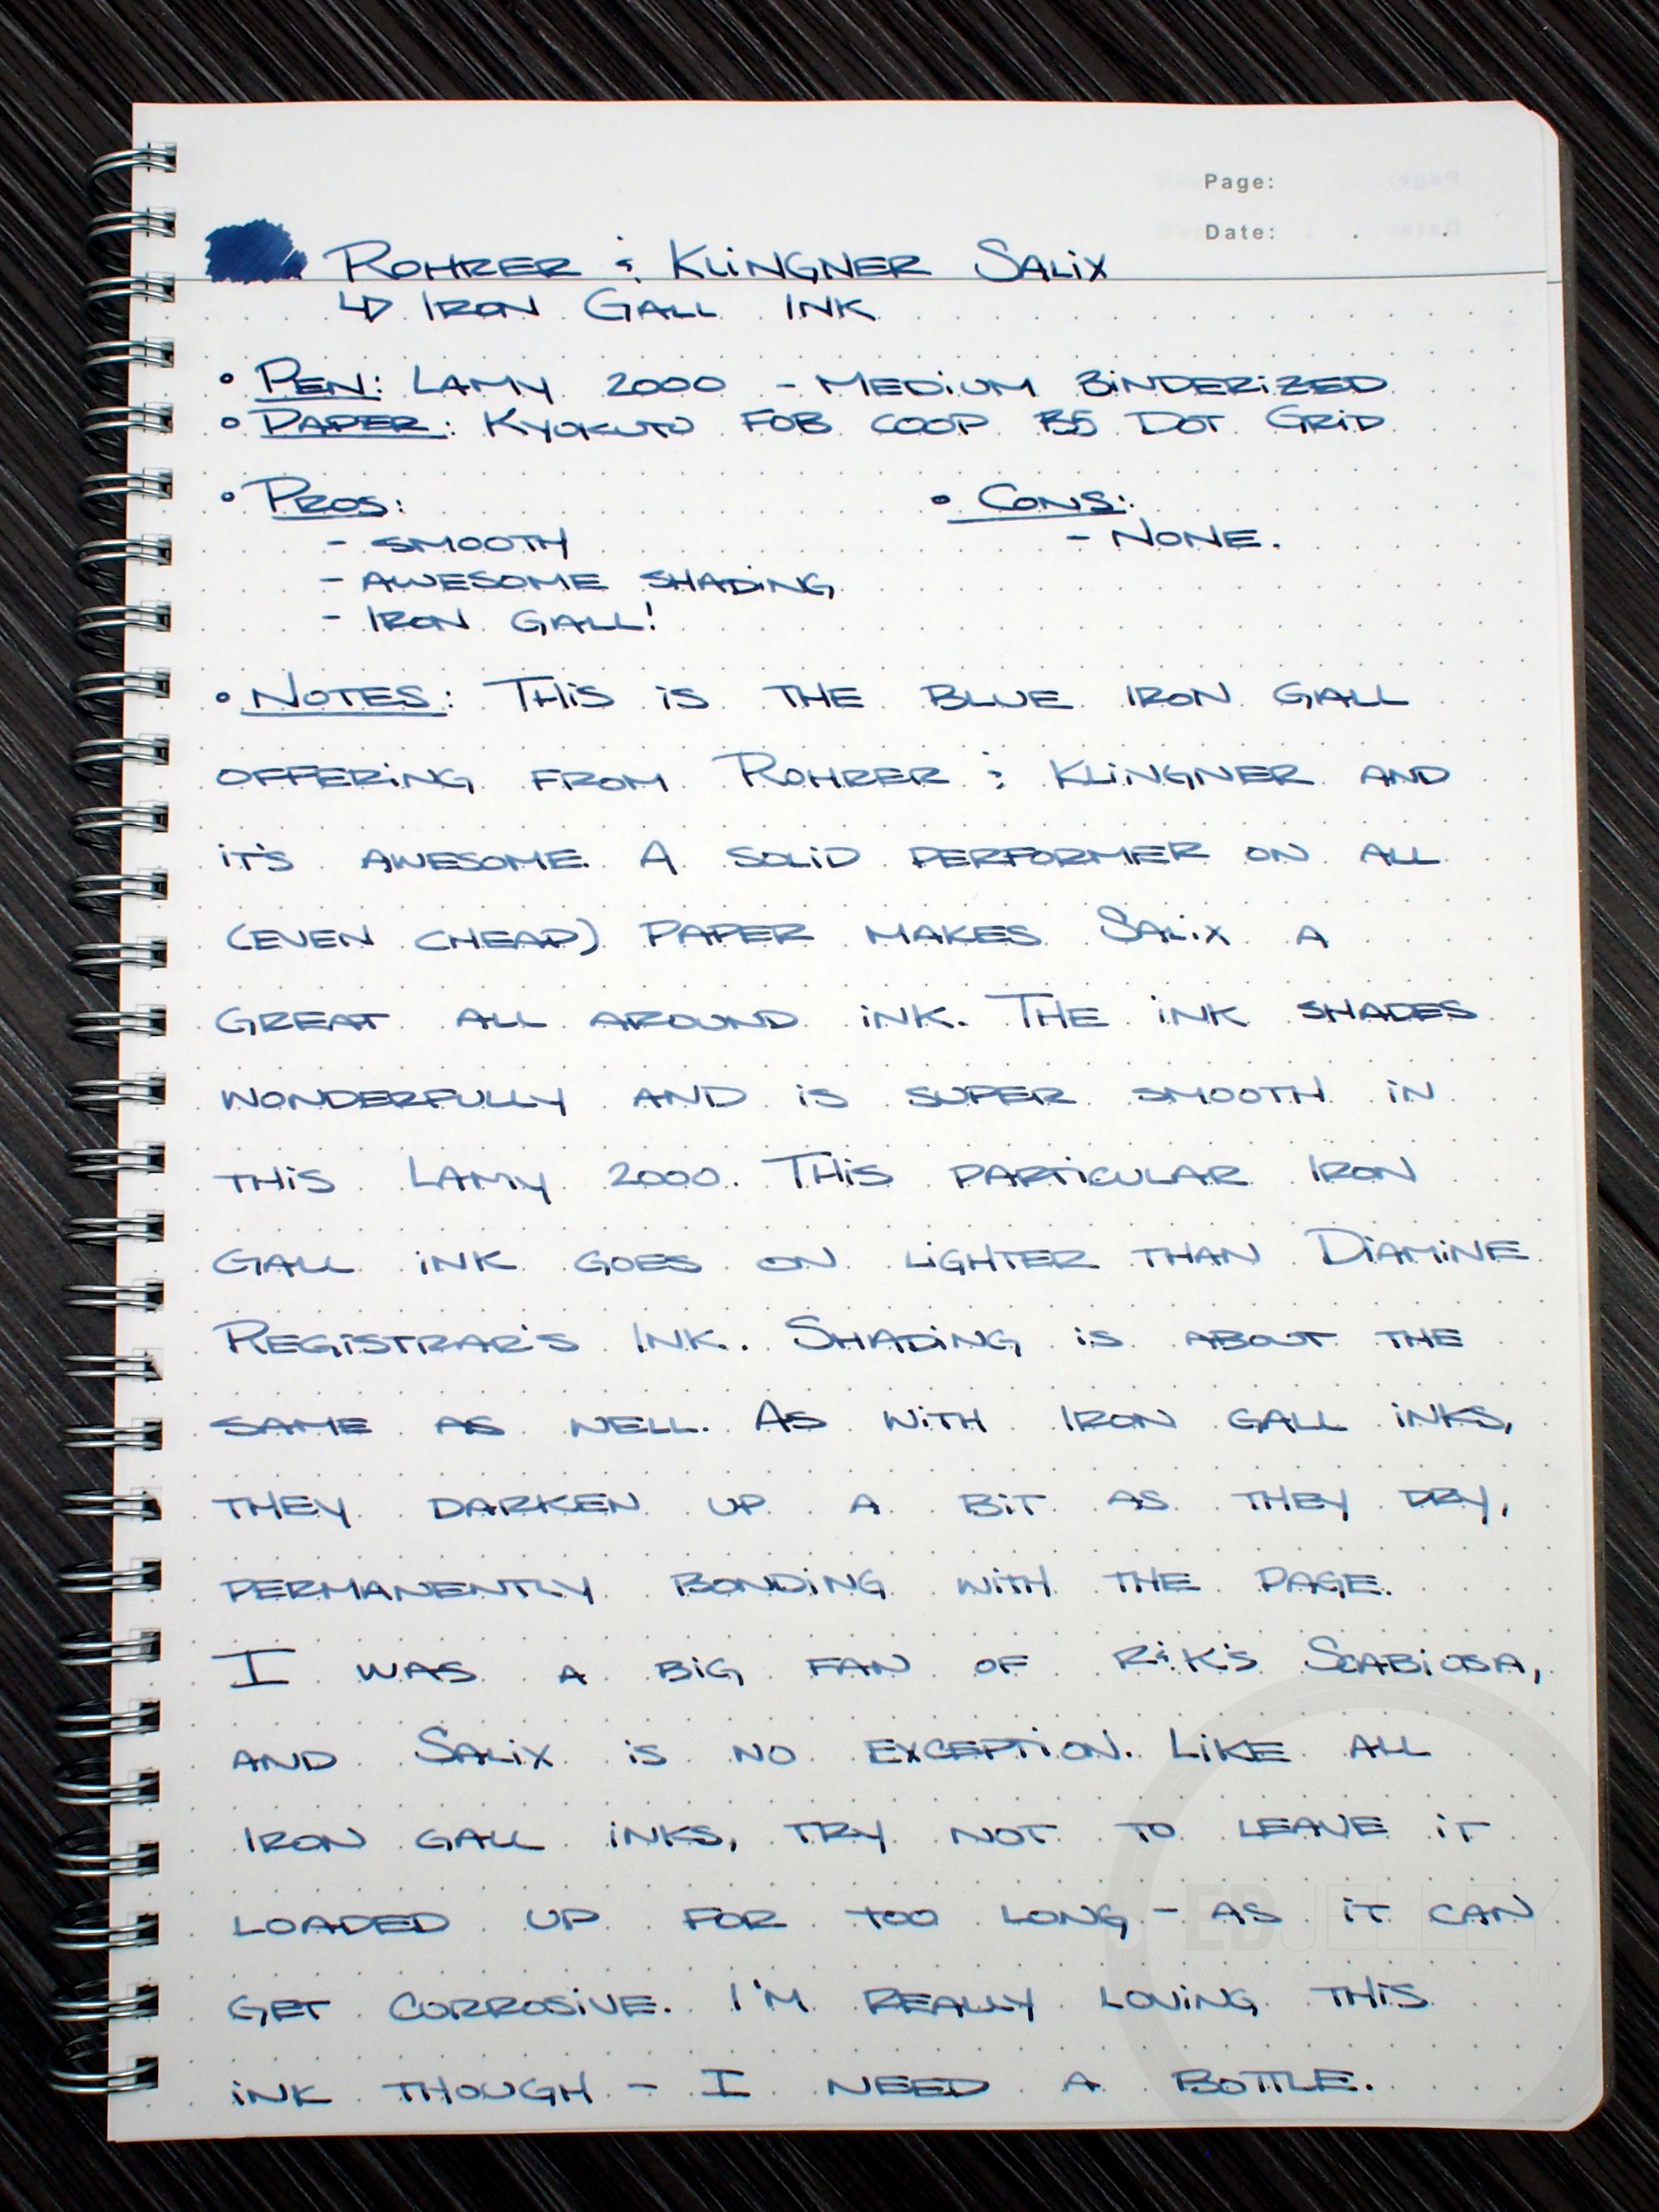 Page:
Date: . .
ROHRER & KLINGNER SALIX
↳ IRON GALL INK
• PEN: LAMY 2000 - MEDIUM BINDERIZED
• PAPER: KYOKUTO FOB COOP B5 DOT GRID
• PROS:
- SMOOTH
- AWESOME SHADING
- IRON GALL!
• CONS:
- NONE.
• NOTES: THIS IS THE BLUE IRON GALL
OFFERING FROM ROHRER & KLINGNER AND
IT'S AWESOME. A SOLID PERFORMER ON ALL
(EVEN CHEAP) PAPER MAKES SALIX A
GREAT ALL AROUND INK. THE INK SHADES
WONDERFULLY AND IS SUPER SMOOTH IN
THIS LAMY 2000. THIS PARTICULAR IRON
GALL INK GOES ON LIGHTER THAN DIAMINE
REGISTRAR'S INK. SHADING IS ABOUT THE
SAME AS WELL. AS WITH IRON GALL INKS,
THEY DARKEN UP A BIT AS THEY DRY,
PERMANENTLY BONDING WITH THE PAGE.
I WAS A BIG FAN OF R&K'S SCABIOSA,
AND SALIX IS NO EXCEPTION. LIKE ALL
IRON GALL INKS, TRY NOT TO LEAVE IT
LOADED UP FOR TOO LONG - AS IT CAN
GET CORROSIVE. I'M REALLY LOVING THIS
INK THOUGH - I NEED A BOTTLE.
EDJELLEY